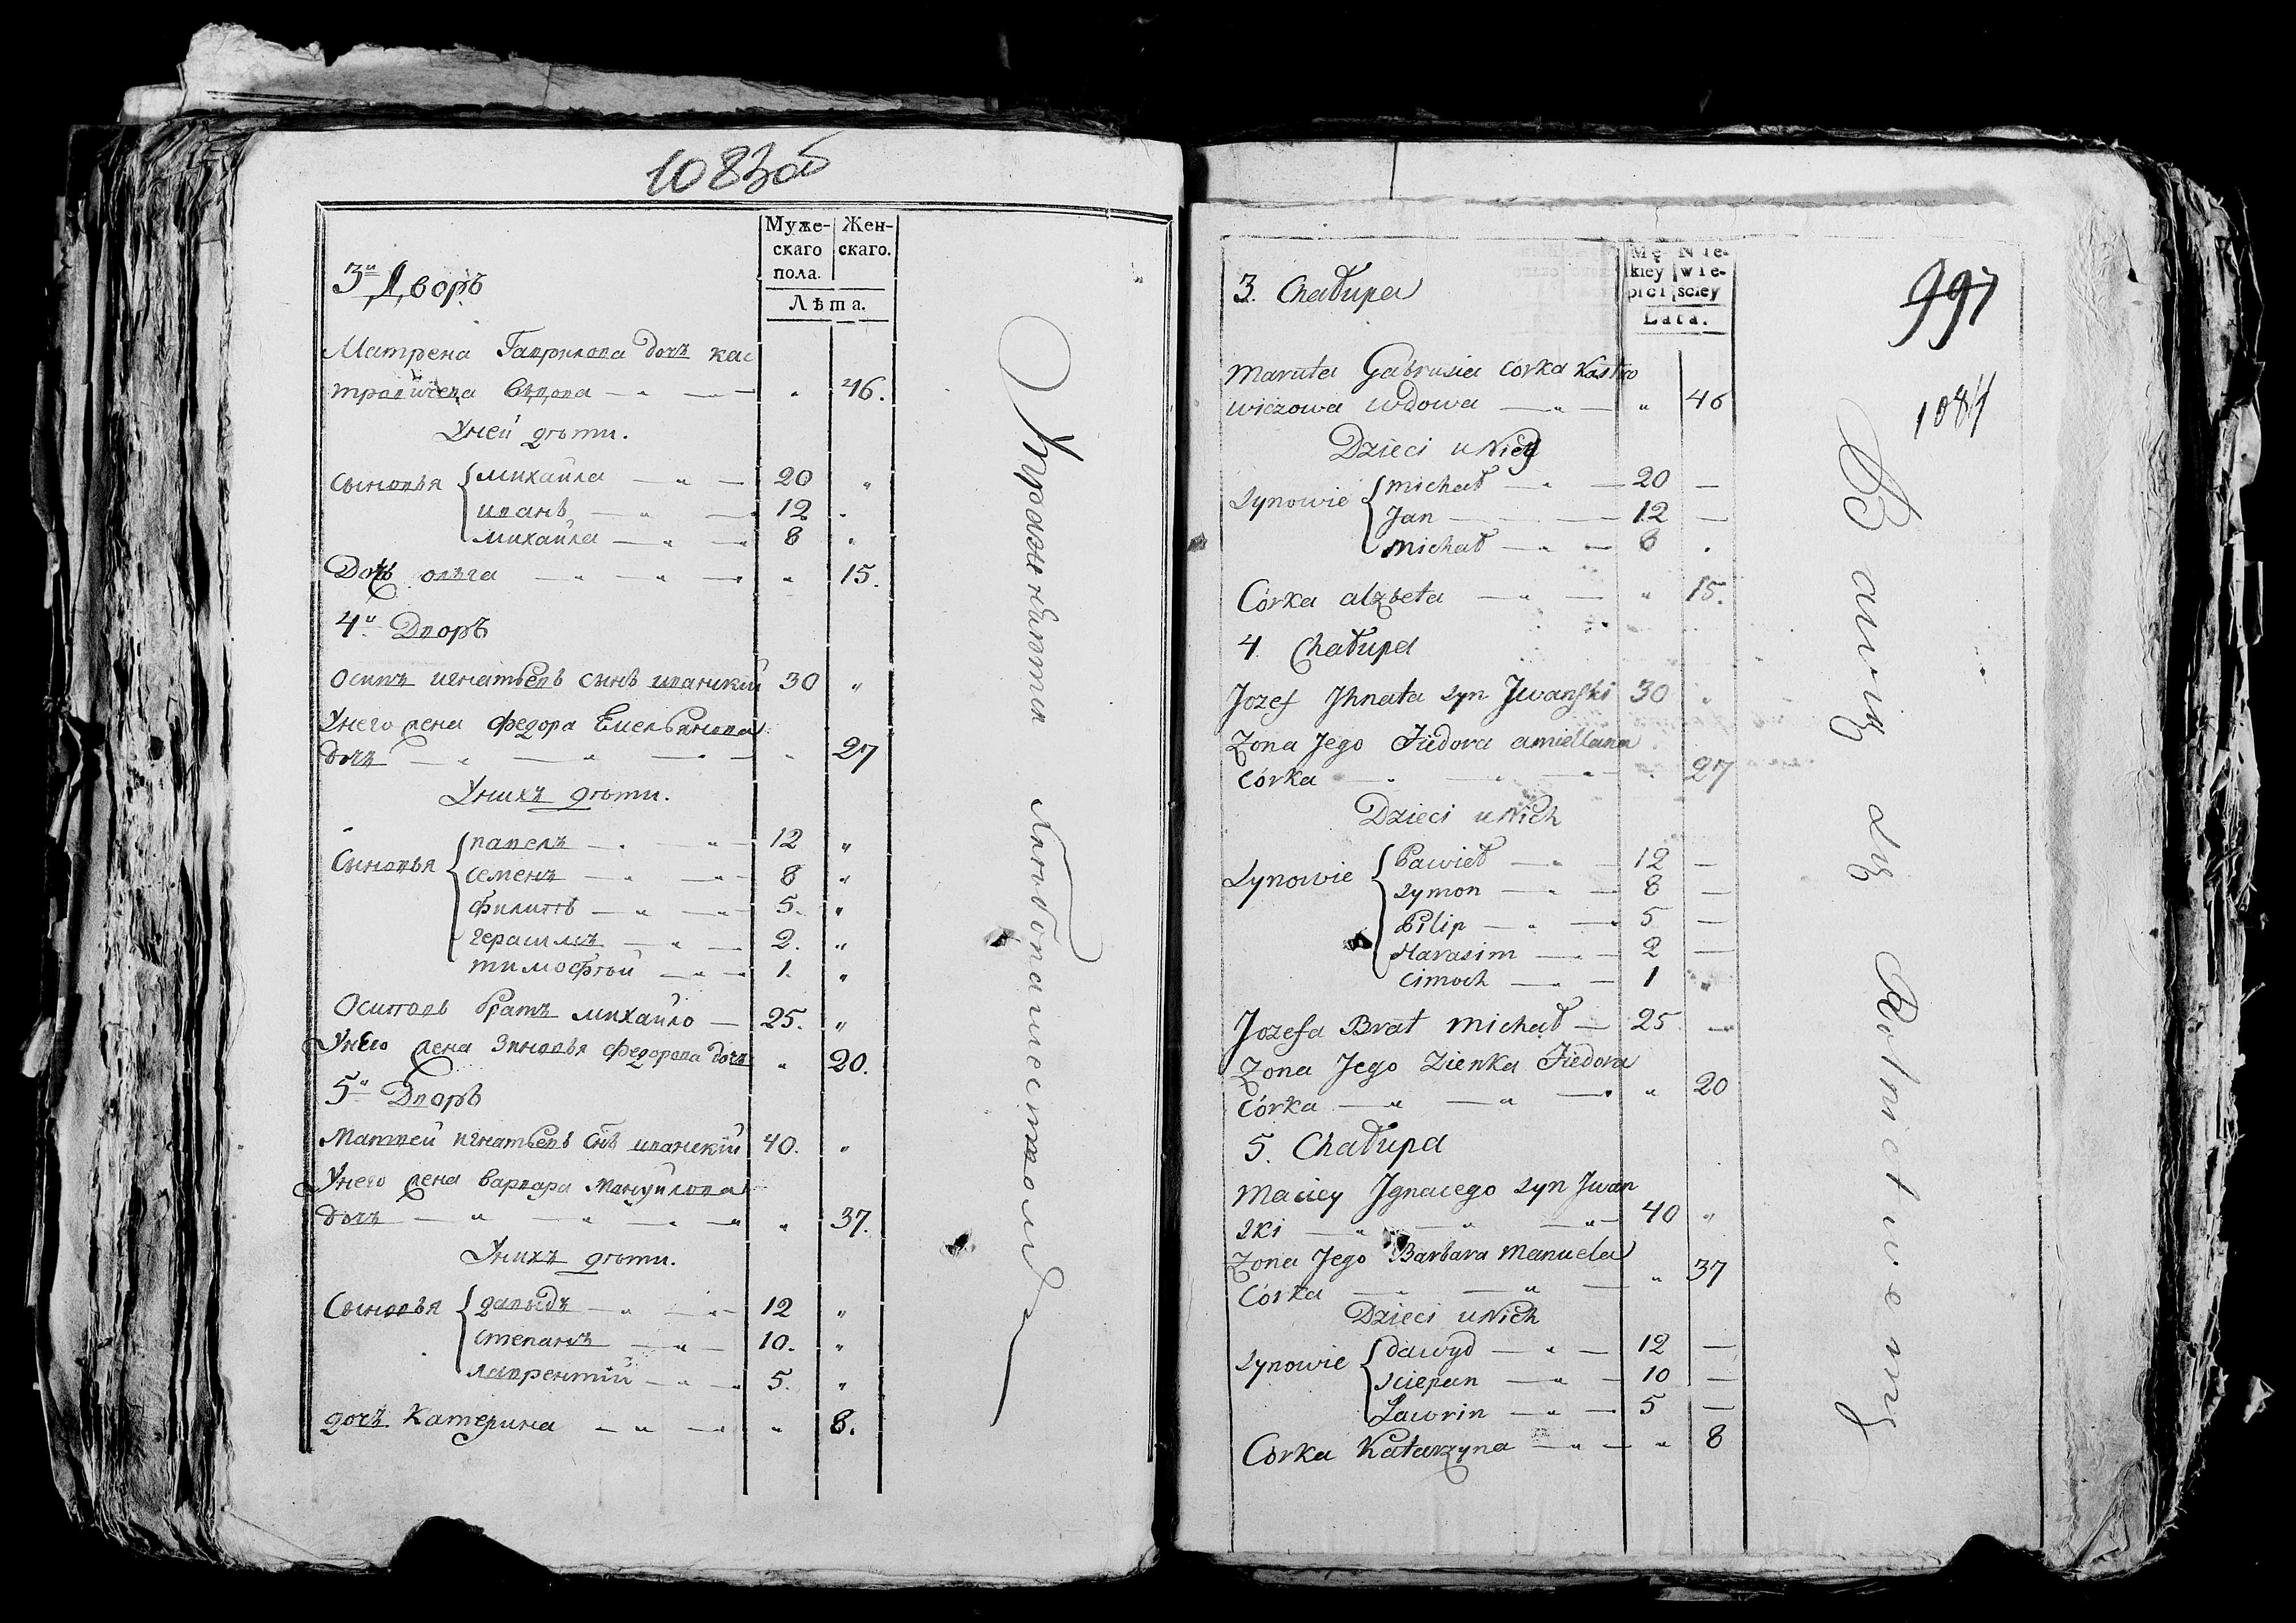 1083об
Муже-
скаго
пола.
Жен-
скаго.
Лѣта.
3й Дворъ
Матрена Гаврилова дочъ кас
тровичева вдова — „ — „ 46.
Уней дѣти.
Сыновья
михайла — „ — 20 „
иванъ — „ — 12 „
михайла — „ — 8 „
Дочъ олѣга — „ — „ — „ 15.
4й Дворъ
Осипъ игнатьевъ синъ иванский 30 „
Унего жена федора Емельянова
дочъ — „ — „ — „ 27
Унихъ дѣти.
Синовья
павелъ — „ — „ 12 „
семенъ — „ — „ 8 „
филипъ — „ — „ 5. „
герасимъ — „ — 2. „
тимофѣй — „ — 1. „
Осиповъ братъ михайло — 25. „
Унего жена Зиновья федорова дочъ „ 20.
5й Дворъ
Матвей игнатьевъ Снъ иванский 40. „
Унего жена варвара мануйлова
дочъ — „ — „ — „ „ 37.
Унихъ дѣти.
Сыновья
давыдъ — „ — „ 12 „
степанъ — „ — 10. „
лаврентий — „ — 5. „
дочъ Катерина — „ — „ 8.
Mę-
kiey
płci
Nie-
wie-
sciey
Lata.
997
1084
3. Chałupa
Maruta Gabrusia córka Kastro
wiczowa wdowa — „ — „ 46
Dzieci u Niey
Synowie
Michał — „ — 20 —
Jan — — 12 —
Michał — „ — 8 „
Córka alzbeta — „ — „ 15.
4 Chałupa
Jozef Jhnata syn Jwanski 30 „
Zona Jego Fiedora amiellana
córka — „ — „ — „ 27
Dzieci u Nich
Synowie
Pawieł — „ — 12 —
Symon — „ — 8 —
Pilip — „ — 5 —
Harasim — „ — 2 —
Cimoch — „ — 1 „
Jozefa Brat Michał — 25 —
Zona Jego Zienka Fiedora
córka — „ — „ — „ 20
5. Chałupa
Maciey Jgnacego syn Jwan
ski — „ — „ — „ 40 „
Zona Jego Barbara Manuela
Córka — „ — „ — „ 37
Dzieci u Nich
Synowie
Dawyd — „ — 12 —
Sciepan — „ — 10 —
Ławrin — „ — 5 —
Corka Katarzyna — „ — „ 8